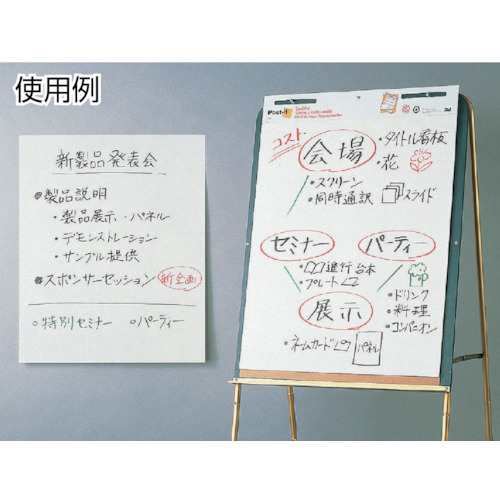 使用例
新製品発表会
製品説明
・製品展示・パネル
・デモンストレーション
・サンプル提供
スポンサーセッション 新企画
○特別セミナー ○パーティー
Post-it
3M
コスト
会場
・タイトル看板
・花
・スクリーン
・同時通訳
スライド
セミナー
パーティー
進行台本
・プレート
展示
・ドリンク
・料理
・コンパニオン
・ネームカード
パネル